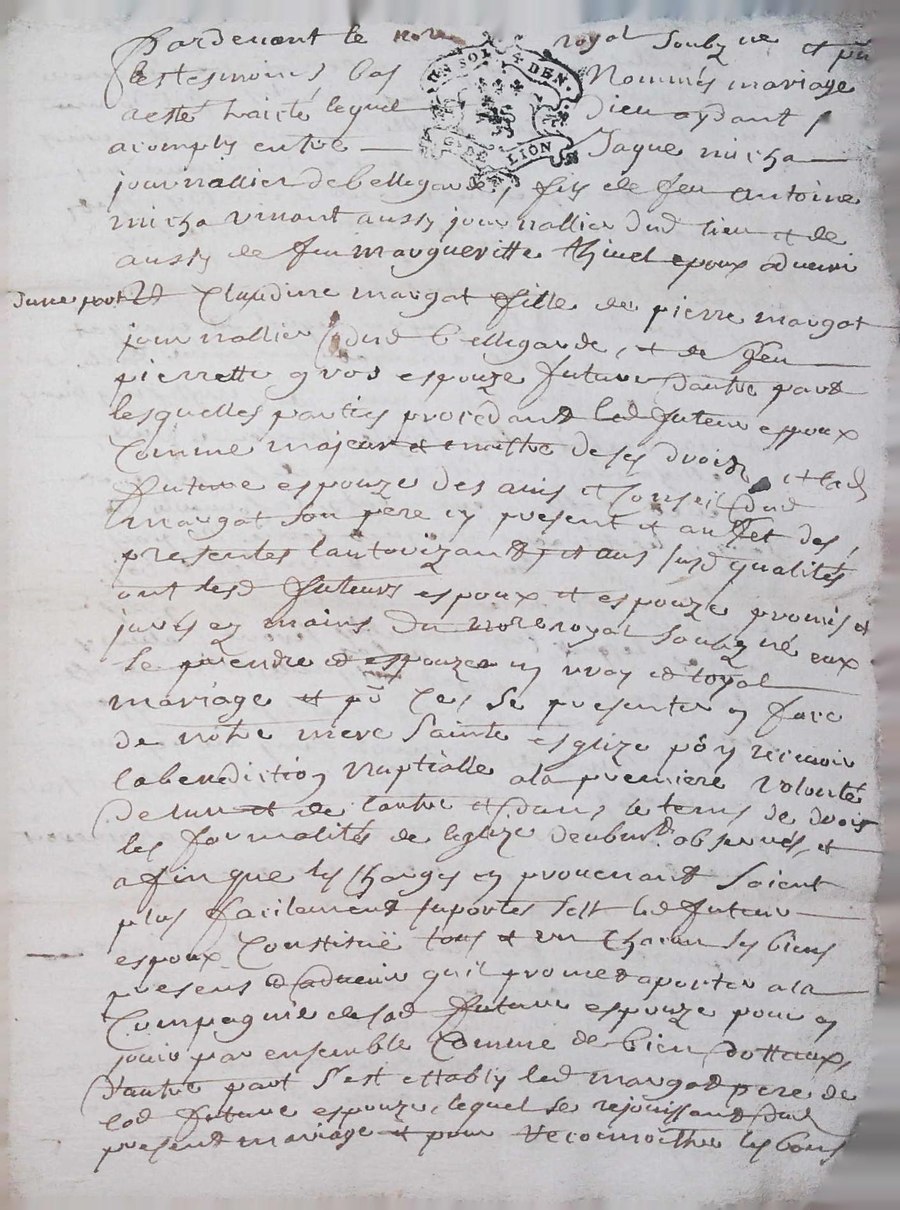 Pardevant le nore royal soubzné et pnt
les tesmoins bas nommés mariage
UN SOL 4 DEN.
LION
a esté traicté lequel Dieu aydant
acomply entre Jaque micha
journallier de bellegarde, fils de feu antoine
micha vivant aussy journallier dud lieu et de
aussy de feu margueritte epoux advenir
dune part Et Claudine margot fille de pierre margot
journallier dud bellegarde, et de feu
pierrette gros espouze future dautre part
lesquelles parties procedant led futeur espoux
Comme majeur et maitre de ses droits, et lad
future espouze des avis et Conseil dud
margot son pere cy present et au fet des
presentes lautorizant, et aus susd qualités
ont lesd futeurs espoux et espouze promis et
jurés ez mains du nore royal soubzné eux
se prendre et espouzer en vray et loyal
mariage et pr Ce, se presenter en face
de notre mere Sainte esglize po y recevoir
la benediction Nuptialle a la premiere volonté
de lun et de lautre et dans le tems de droit
les formalités de leglize observés, et
afin que les Charges en provenant soient
plus facilement suportés s'est led futeur
espoux Constitué tous et un Chacun ses biens
presens et advenir qu'il promet aporter a la
Compagnie de sad future espouze pour en
jouir par ensemble Comme de bien dottaux,
dautre part s'est ettably led margot pere de
lad future espouze, lequel se rejouissant dud
present mariage et pour reconnoithre les bons